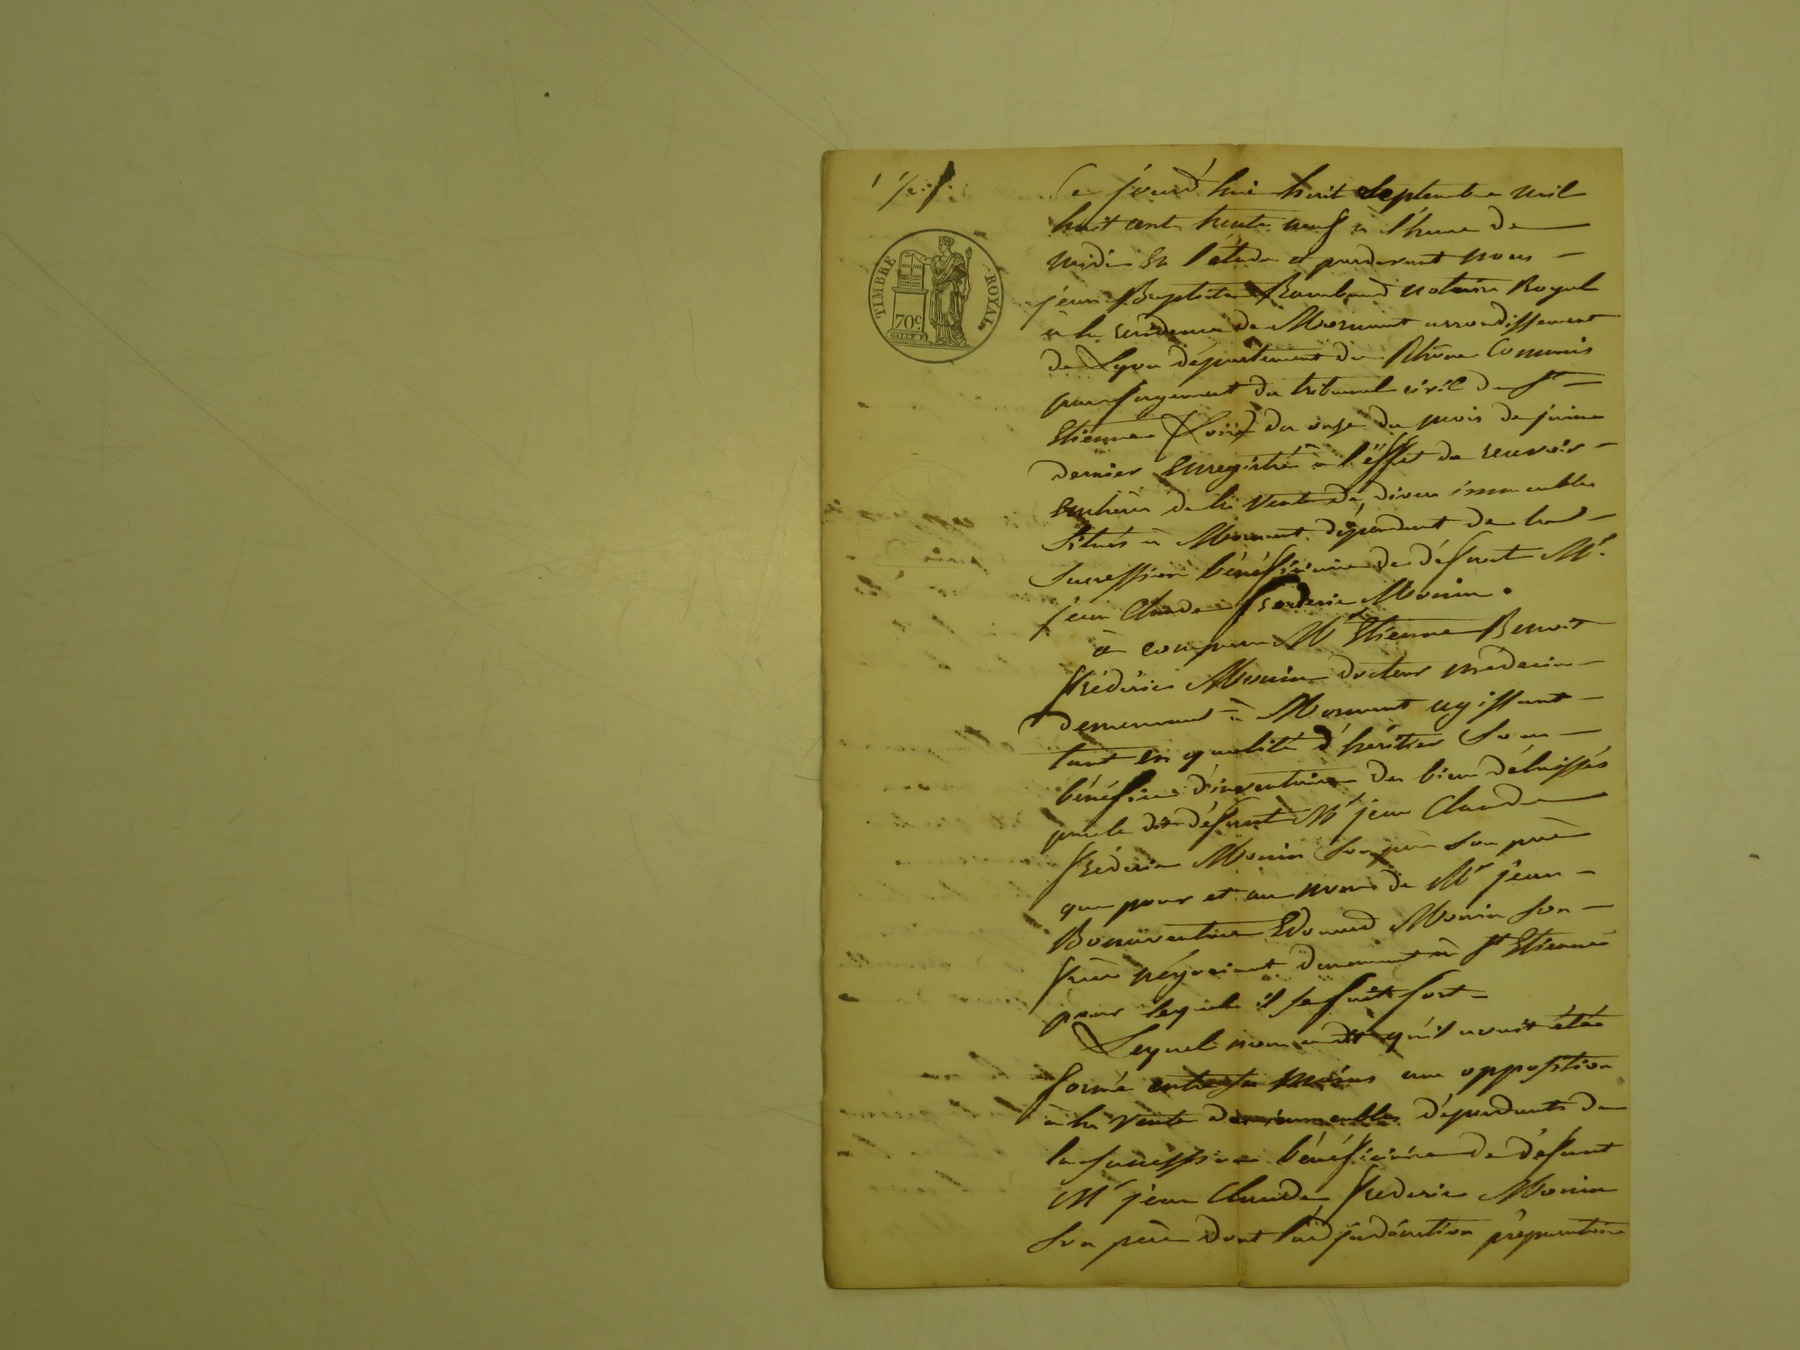 TIMBRE ROYAL
70c
Ce jourd'hui huit septembre mil
huit cent trente neuf à l'heure de
midi En l'étude et pardevant nous
jean Baptiste notaire Royal
à la residence de Mornant arrondissement
de Lyon département du Rhône Commis
par jugement du tribunal civil de St
Etienne (Loire) du onze du mois de juin
dernier Enregistré à l'éffet de recevoir
Enchères de la vente de divers immeubles
Situés à Mornant dépendant de la
Succession bénéficiaire de défunt Mr
jean Claude frederic Monin.
à comparu Mr Etienne Benoit
frédéric Monin docteur médecin
demeurant à Mornant agissant
tant en qualité d'héritier Sous
bénéfice d'inventaire des biens délaissés
par le dit défunt Mr jean Claude
fréderic Monin Son père
que pour et au nom de Mr jean
Bonaventure Edouard Monin Son
frère négociant demeurant à St Etienne
pour lequel il se fait fort
Lequel nous a dit qu'il avait été
formé entre ses mains une opposition
à la vente des immeubles dépendants de
la succession bénéficiaire de défunt
Mr jean Claude frederic Monin
Son père dont l'adjudication préparatoire